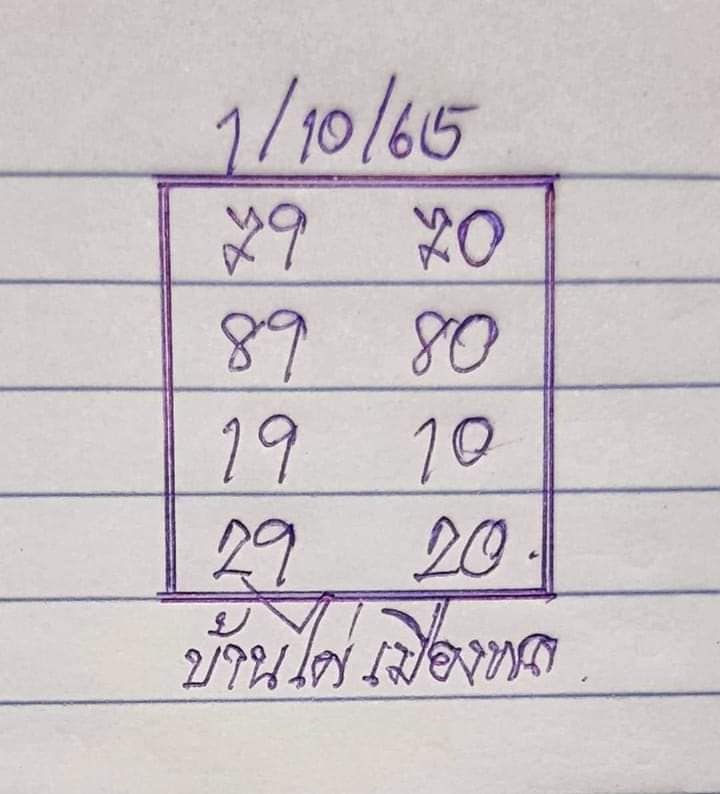 1/10/65
79 70
89 80
19 10
29 20.
บ้านไผ่ เมืองพล